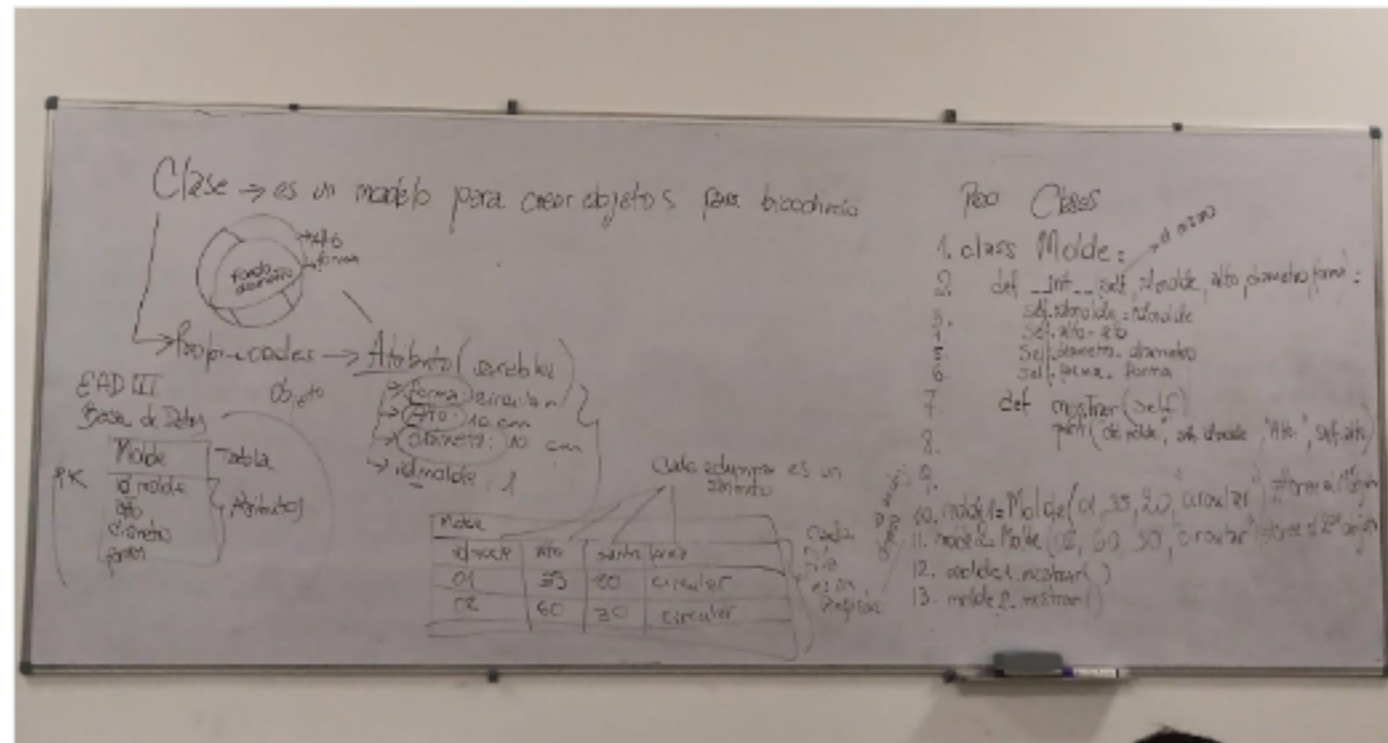 Clase → es un modelo para crear objetos para
→ Alto
→ forma
fondo
diametro
→ Propiedades → Atributo (variables)
Objeto
→ forma: circular
→ Alto: 10 cm
→ diametro: 10 cm
→ idmolde: 1
EAD III
Base de Datos
Molde
Tabla
PK
id_molde
alto
diametro
forma
Atributos
Cada columna es un
Molde
idmolde alto forma
01 35 20 circular
02 60 30 circular
Cada
fila
es un
Clases
1. class Molde:
2. def __int__(self, idmolde, alto, diametro, forma):
3. self.idmolde = idmolde
4. self.alto = alto
5. self.diametro = diametro
6. self.forma = forma
7. def mostrar(self)
8. print("idmolde", self.idmolde, "Alto", self.alto)
9.
10. molde1 = Molde(01, 35, 20, "circular")
11. molde2 = Molde(02, 60, 30, "circular")
12. molde1.mostrar()
13. molde2.mostrar()